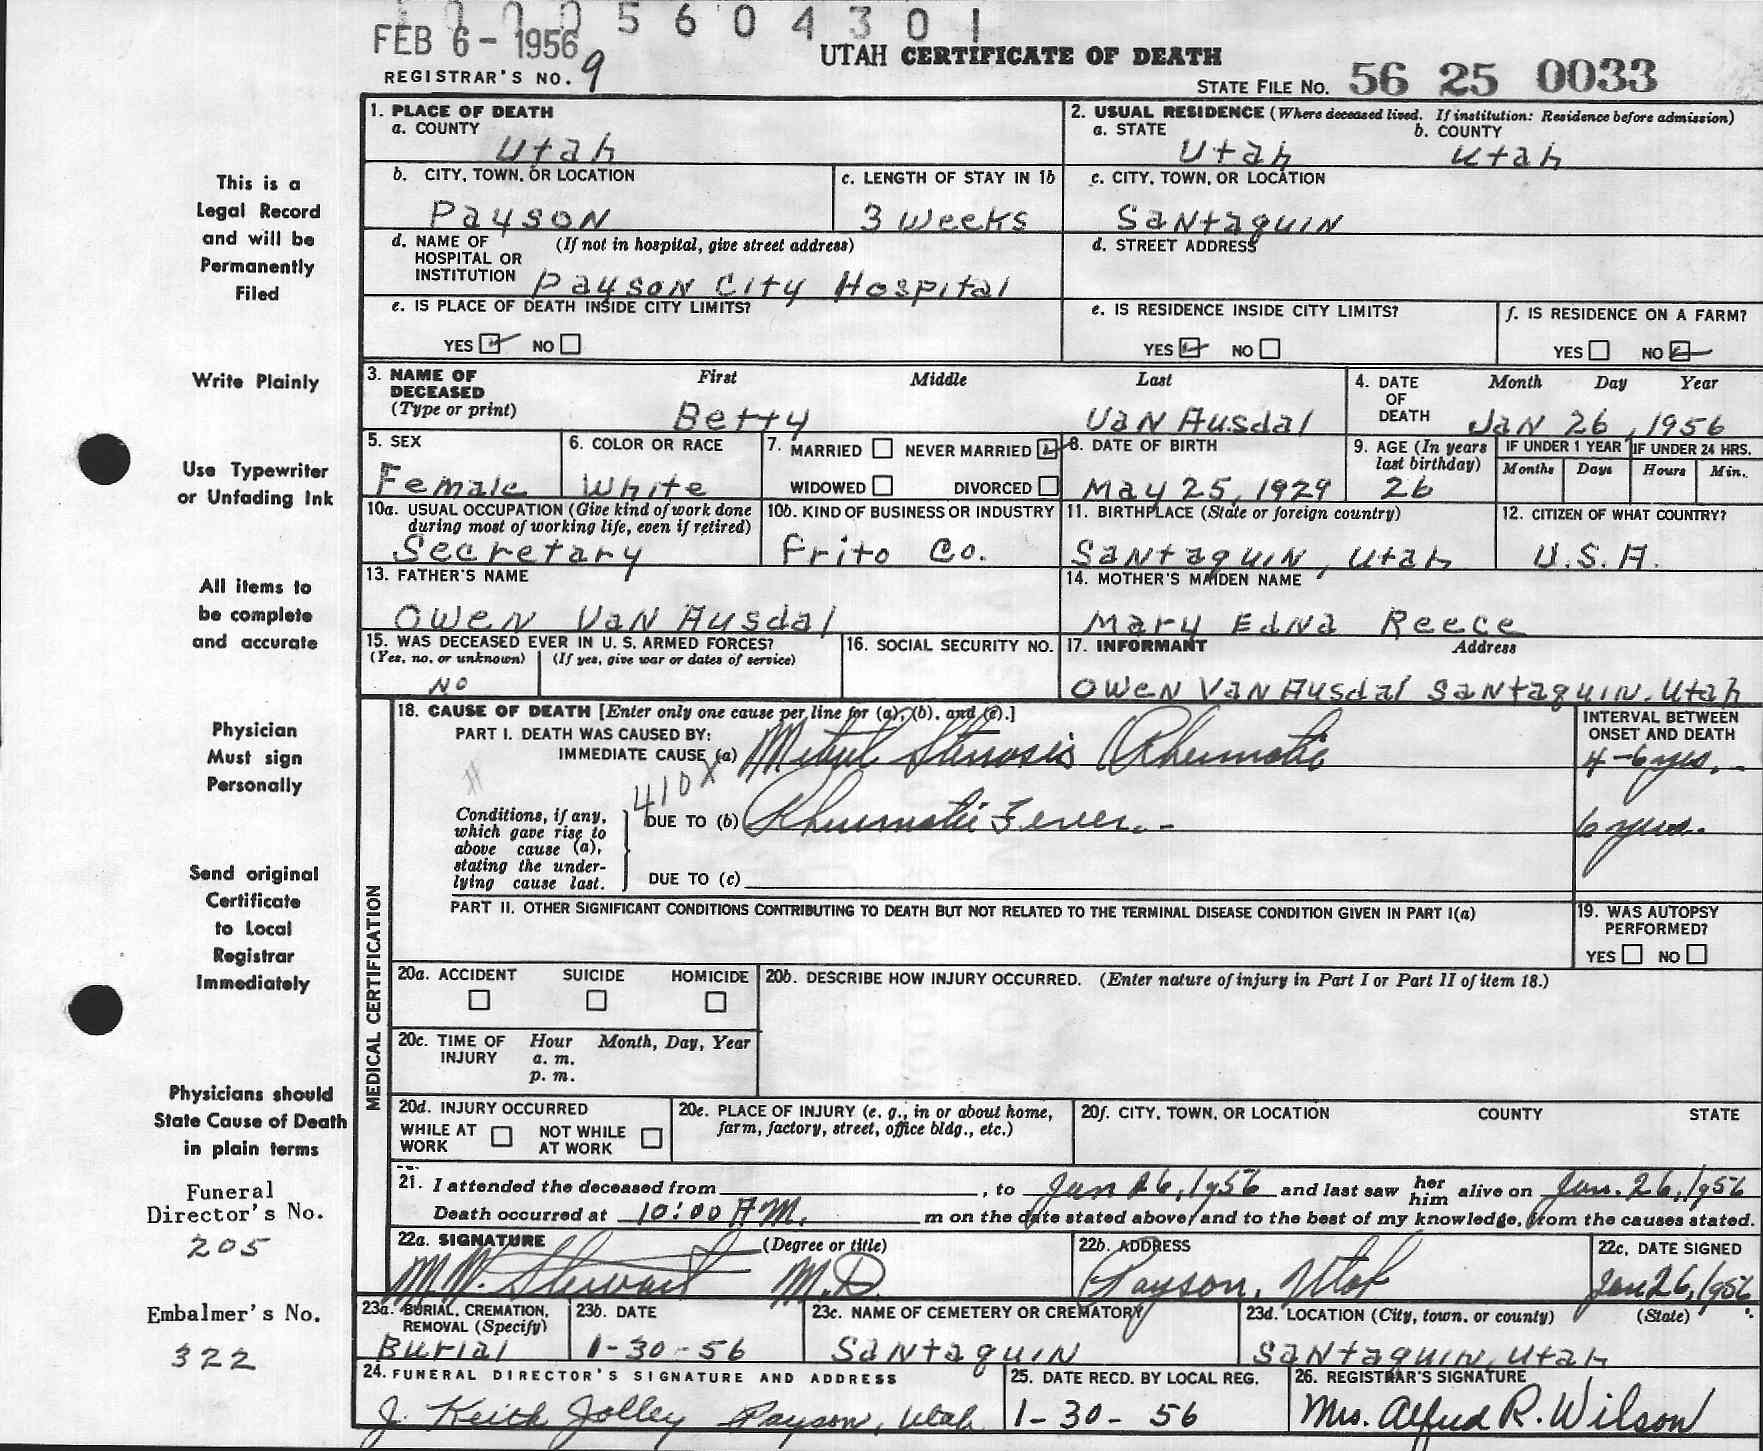 10005604301
FEB 6 - 1956
REGISTRAR'S NO. 9
UTAH CERTIFICATE OF DEATH
STATE FILE NO. 56 25 0033
This is a
Legal Record
and will be
Permanently
Filed
Write Plainly
Use Typewriter
or Unfading Ink
All items to
be complete
and accurate
Physician
Must sign
Personally
Send original
Certificate
to Local
Registrar
Immediately
Physicians should
State Cause of Death
in plain terms
Funeral
Director's No.
205
Embalmer's No.
322
1. PLACE OF DEATH
a. COUNTY
Utah
2. USUAL RESIDENCE (Where deceased lived. If institution: Residence before admission)
a. STATE b. COUNTY
Utah Utah
b. CITY, TOWN, OR LOCATION
Payson
c. LENGTH OF STAY IN 1b
3 Weeks
c. CITY, TOWN, OR LOCATION
Santaquin
d. NAME OF (If not in hospital, give street address)
HOSPITAL OR
INSTITUTION Payson City Hospital
d. STREET ADDRESS
e. IS PLACE OF DEATH INSIDE CITY LIMITS?
YES NO
e. IS RESIDENCE INSIDE CITY LIMITS?
YES NO
f. IS RESIDENCE ON A FARM?
YES NO
3. NAME OF First Middle Last
DECEASED
(Type or print) Betty Van Ausdal
4. DATE Month Day Year
OF
DEATH Jan 26, 1956
5. SEX
Female
6. COLOR OR RACE
White
7. MARRIED NEVER MARRIED
WIDOWED DIVORCED
8. DATE OF BIRTH
May 25, 1929
9. AGE (In years
last birthday)
26
IF UNDER 1 YEAR IF UNDER 24 HRS.
Months Days Hours Min.
10a. USUAL OCCUPATION (Give kind of work done
during most of working life, even if retired)
Secretary
10b. KIND OF BUSINESS OR INDUSTRY
Frito Co.
11. BIRTHPLACE (State or foreign country)
Santaquin, Utah
12. CITIZEN OF WHAT COUNTRY?
U.S.A.
13. FATHER'S NAME
Owen Van Ausdal
14. MOTHER'S MAIDEN NAME
Mary Edna Reece
15. WAS DECEASED EVER IN U. S. ARMED FORCES?
(Yes, no, or unknown) (If yes, give war or dates of service)
No
16. SOCIAL SECURITY NO.
17. INFORMANT Address
Owen Van Ausdal Santaquin, Utah
MEDICAL CERTIFICATION
18. CAUSE OF DEATH [Enter only one cause per line for (a), (b), and (c).]
PART I. DEATH WAS CAUSED BY:
IMMEDIATE CAUSE (a) Mitral Stenosis (Rheumatic
INTERVAL BETWEEN
ONSET AND DEATH
4-6 yrs.
410X
Conditions, if any,
which gave rise to
above cause (a),
stating the under-
lying cause last.
DUE TO (b) Rheumatic Fever.
6 years.
DUE TO (c)
PART II. OTHER SIGNIFICANT CONDITIONS CONTRIBUTING TO DEATH BUT NOT RELATED TO THE TERMINAL DISEASE CONDITION GIVEN IN PART I(a)
19. WAS AUTOPSY
PERFORMED?
YES NO
20a. ACCIDENT SUICIDE HOMICIDE
20b. DESCRIBE HOW INJURY OCCURRED. (Enter nature of injury in Part I or Part II of item 18.)
20c. TIME OF Hour Month, Day, Year
INJURY a. m.
p. m.
20d. INJURY OCCURRED
WHILE AT NOT WHILE
WORK AT WORK
20e. PLACE OF INJURY (e. g., in or about home,
farm, factory, street, office bldg., etc.)
20f. CITY, TOWN, OR LOCATION COUNTY STATE
21. I attended the deceased from , to Jan 26, 1956 and last saw her him alive on Jan. 26, 1956
Death occurred at 10:00 AM. m on the date stated above, and to the best of my knowledge, from the causes stated.
22a. SIGNATURE (Degree or title)
M.W. Stewart M.D.
22b. ADDRESS
Payson, Utah
22c. DATE SIGNED
Jan 26, 1956
23a. BURIAL, CREMATION,
REMOVAL (Specify)
Burial
23b. DATE
1-30-56
23c. NAME OF CEMETERY OR CREMATORY
Santaquin
23d. LOCATION (City, town, or county) (State)
Santaquin, Utah
24. FUNERAL DIRECTOR'S SIGNATURE AND ADDRESS
J. Keith Jolley Payson, Utah
25. DATE RECD. BY LOCAL REG.
1-30-56
26. REGISTRAR'S SIGNATURE
Mrs. Alfred R. Wilson